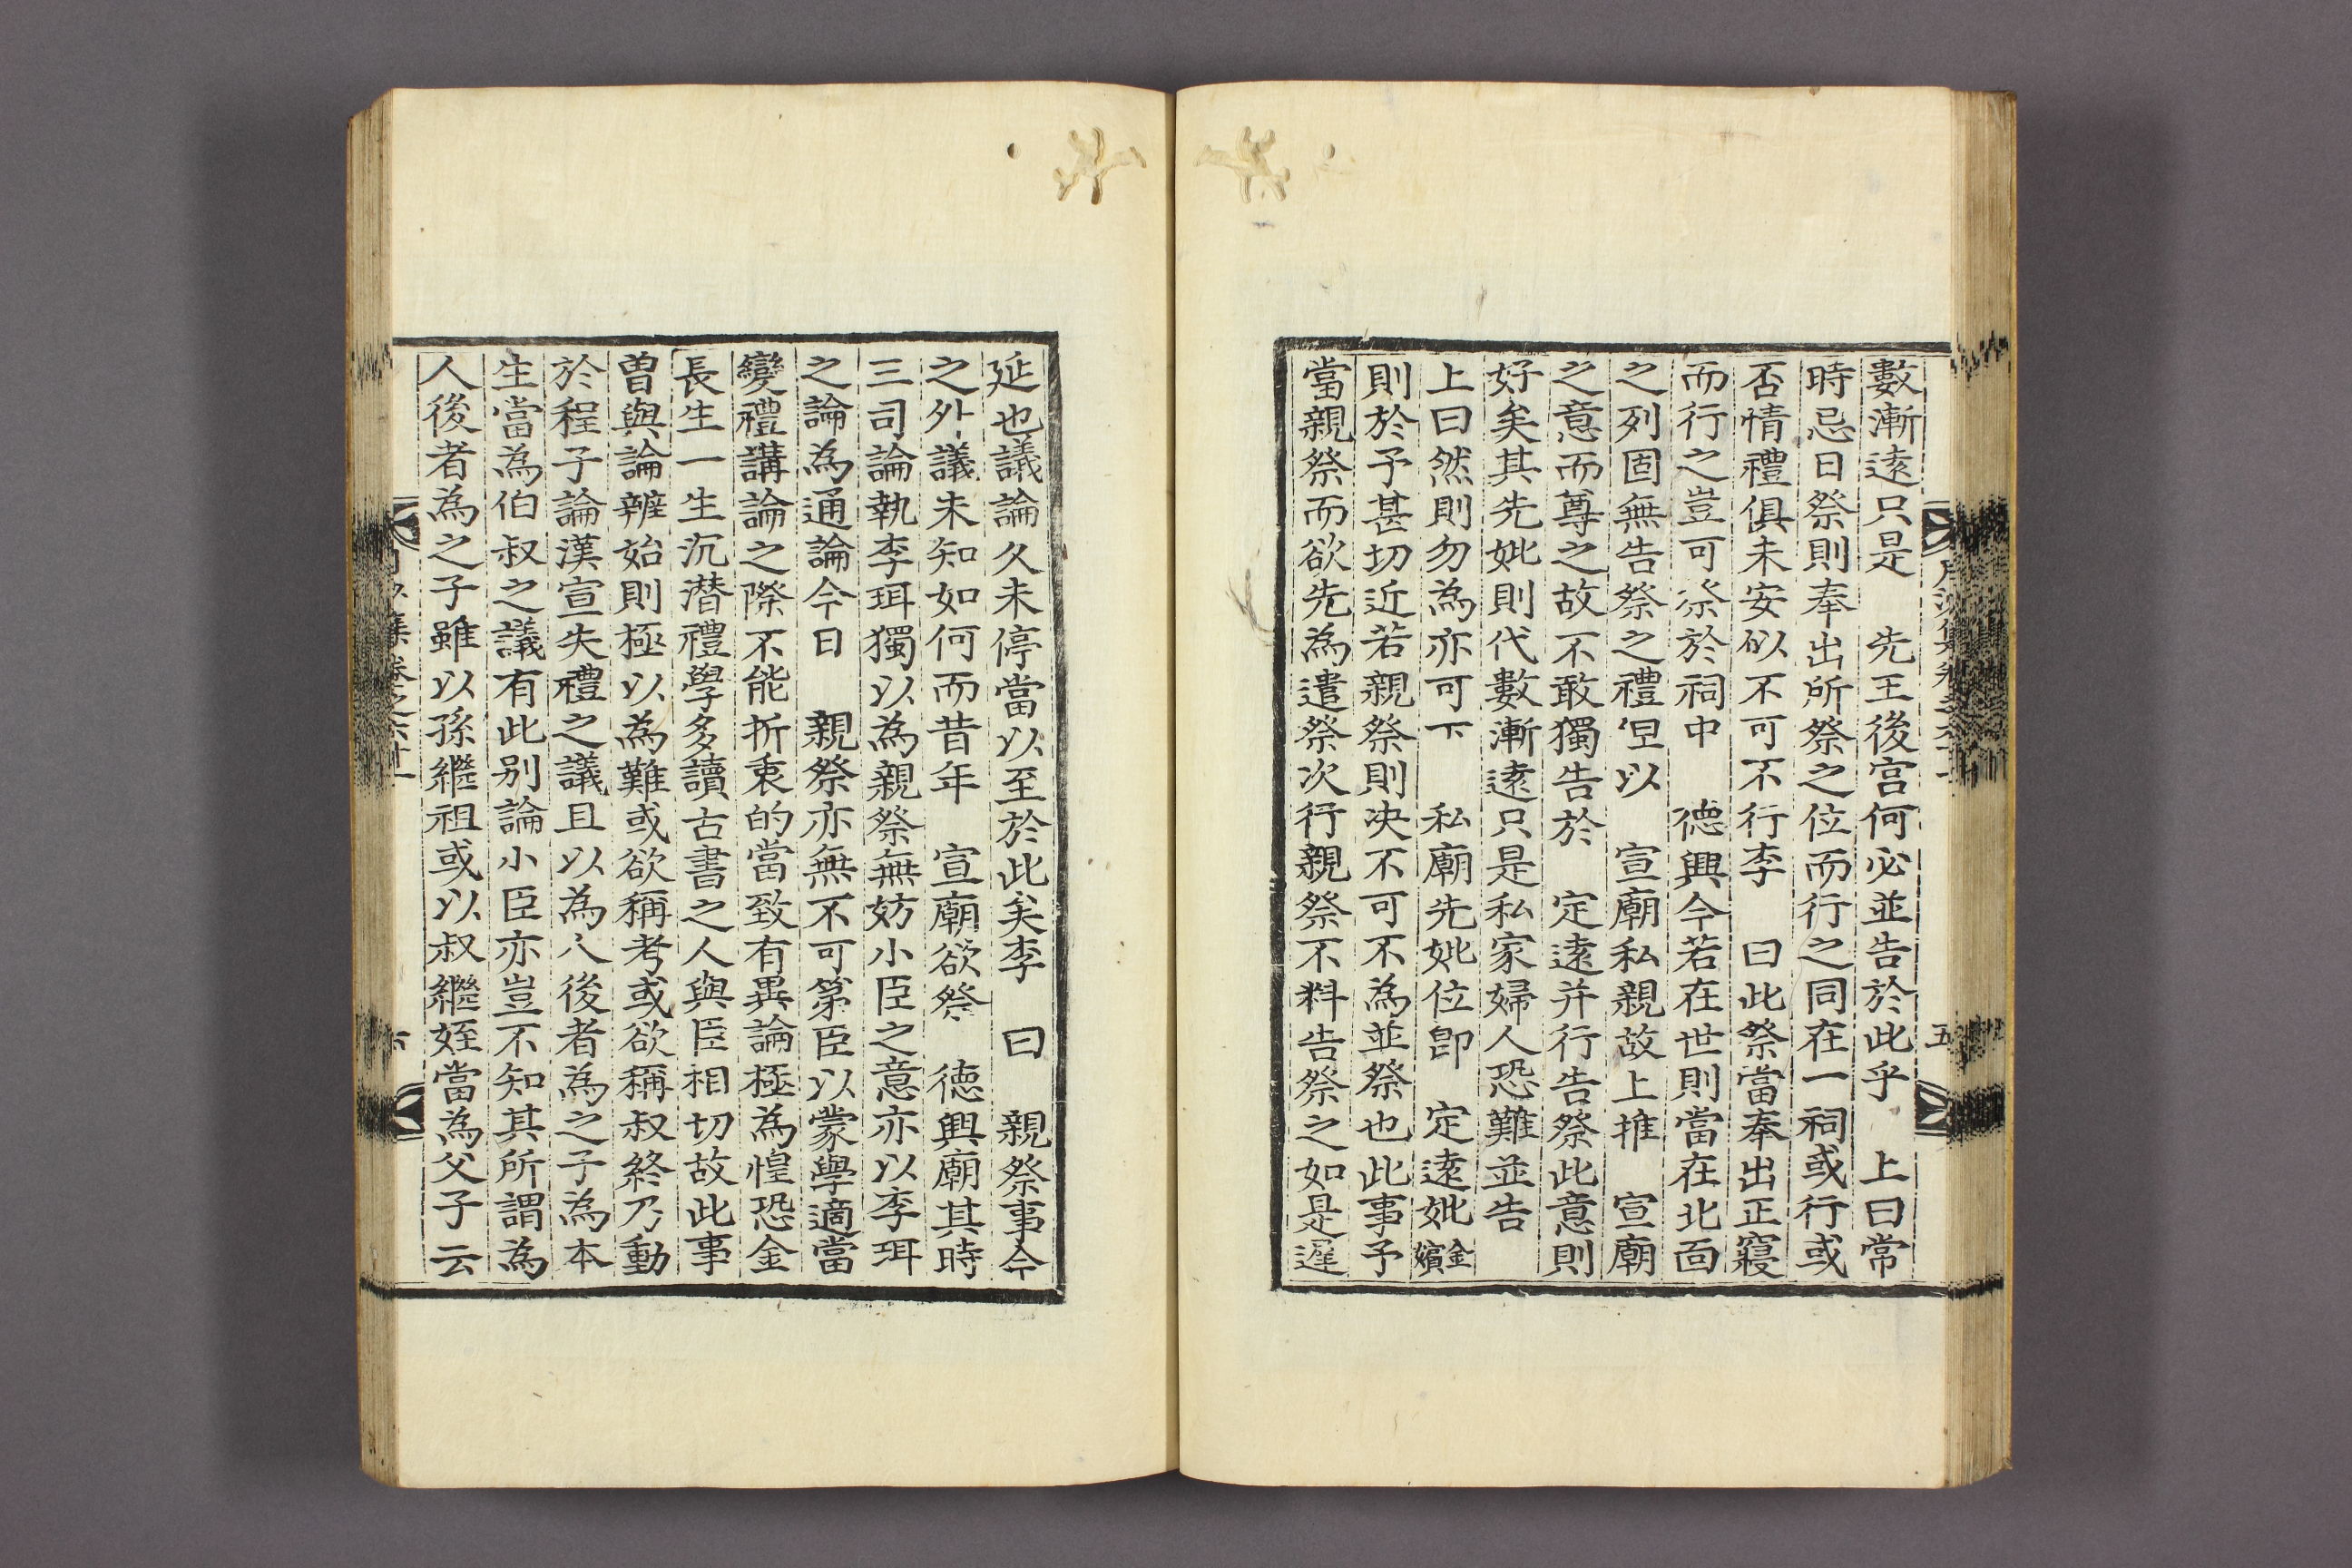 數漸逺只是 先王後宫何必並告於此乎 上曰常
時忌日祭則奉出所祭之位而行之同在一祠或行或
否情禮俱未安似不可不行李 曰此祭當奉出正寢
而行之豈可祭於祠中 德興今若在世則當在北面
之列固無告祭之禮但以 宣廟私親故上推 宣廟
之意而尊之故不敢獨告於 定逺并行告祭此意則
好矣其先妣則代數漸逺只是私家婦人恐難並告
上曰然則勿為亦可下 私廟先妣位卽 定逺妣金嬪
則於予甚切近若親祭則决不可不為並祭也此事予
當親祭而欲先為遣祭次行親祭不料告祭之如是遲
五
延也議論久未停當以至於此矣李 曰 親祭事今
之外議未知如何而昔年 宣廟欲祭 德興廟其時
三司論執李珥獨以為親祭無妨小臣之意亦以李珥
之論為通論今日 親祭亦無不可第臣以蒙學適當
變禮講論之際不能折衷的當致有異論極為惶恐金
長生一生沉潜禮學多讀古書之人與臣相切故此事
曽與論辨始則極以為難或欲稱考或欲稱叔終乃動
於程子論漢宣失禮之議且以為人後者為之子為本
生當為伯叔之議有此别論小臣亦豈不知其所謂為
人後者為之子雖以孫繼祖或以叔繼姪當為父子云